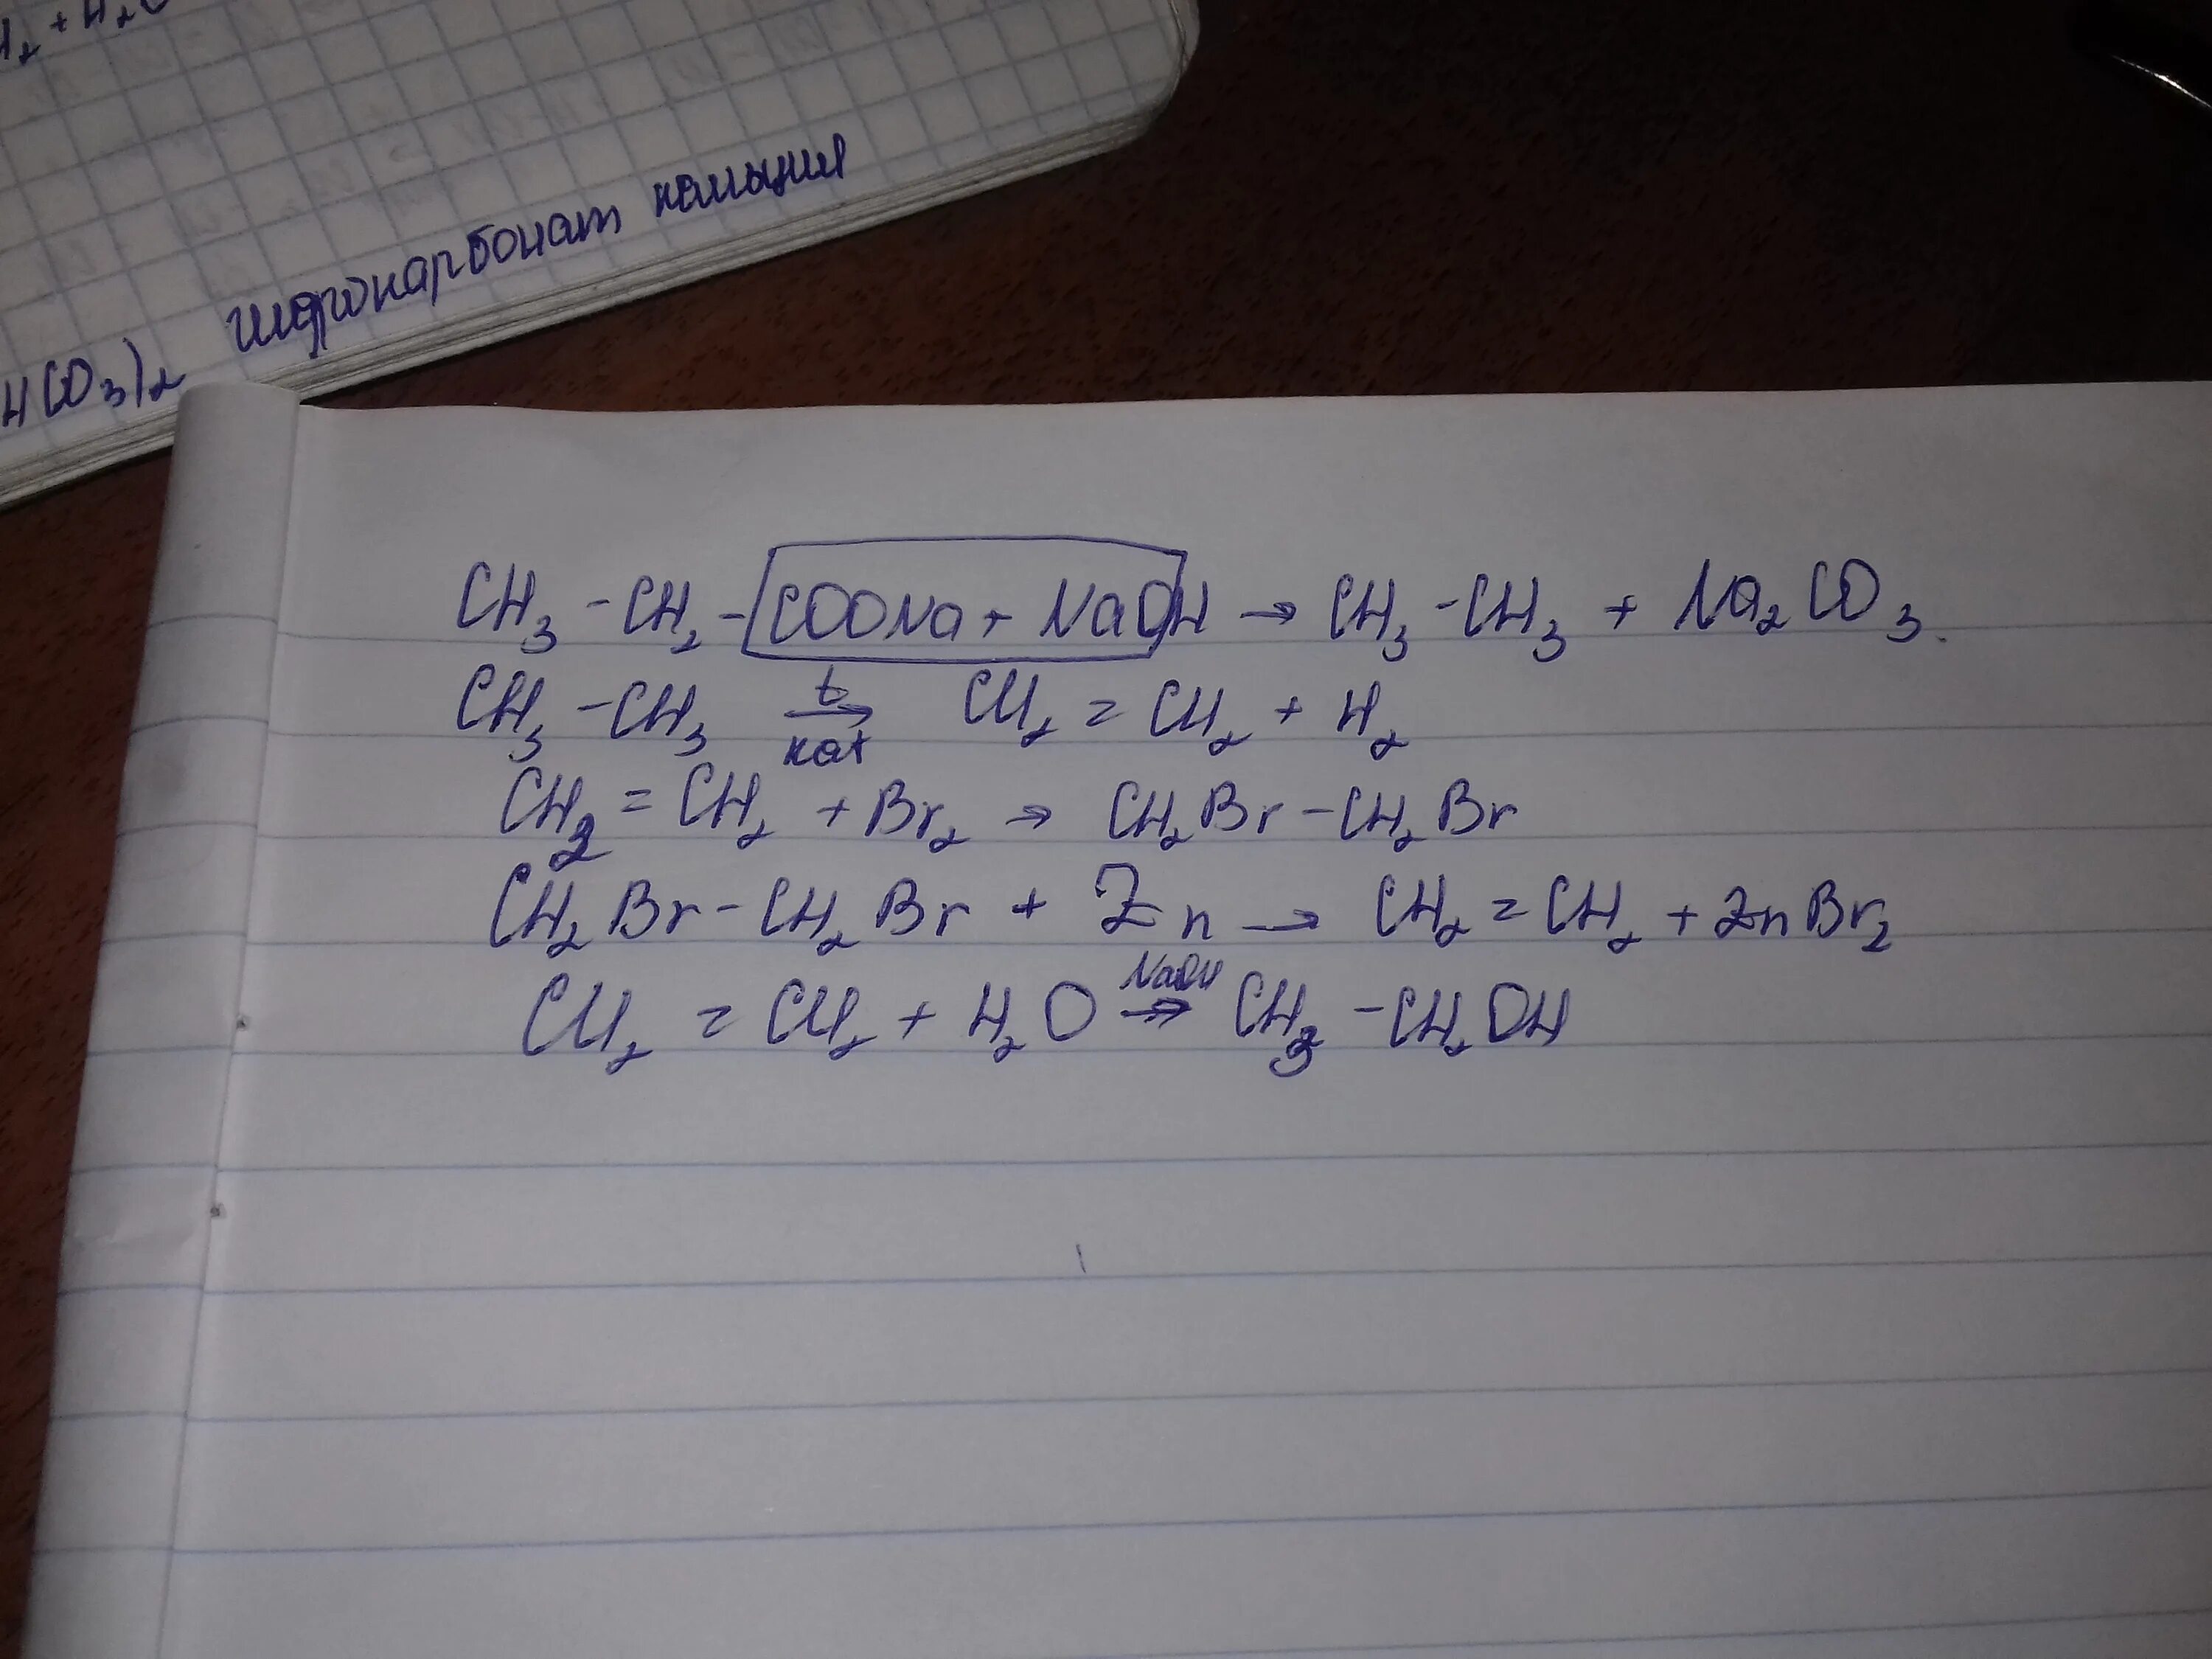 H₂ + H₂O
гидрокарбонат кальция
H(CO₃)₂
CH₃ - CH₂ - COONa + NaOH → CH₃ - CH₃ + Na₂CO₃.
CH₃ - CH₃ t → кат CH₂ = CH₂ + H₂
CH₂ = CH₂ + Br₂ → CH₂Br - CH₂Br
CH₂Br - CH₂Br + Zn → CH₂ = CH₂ + ZnBr₂
CH₂ = CH₂ + H₂O NaOH → CH₃ - CH₂OH